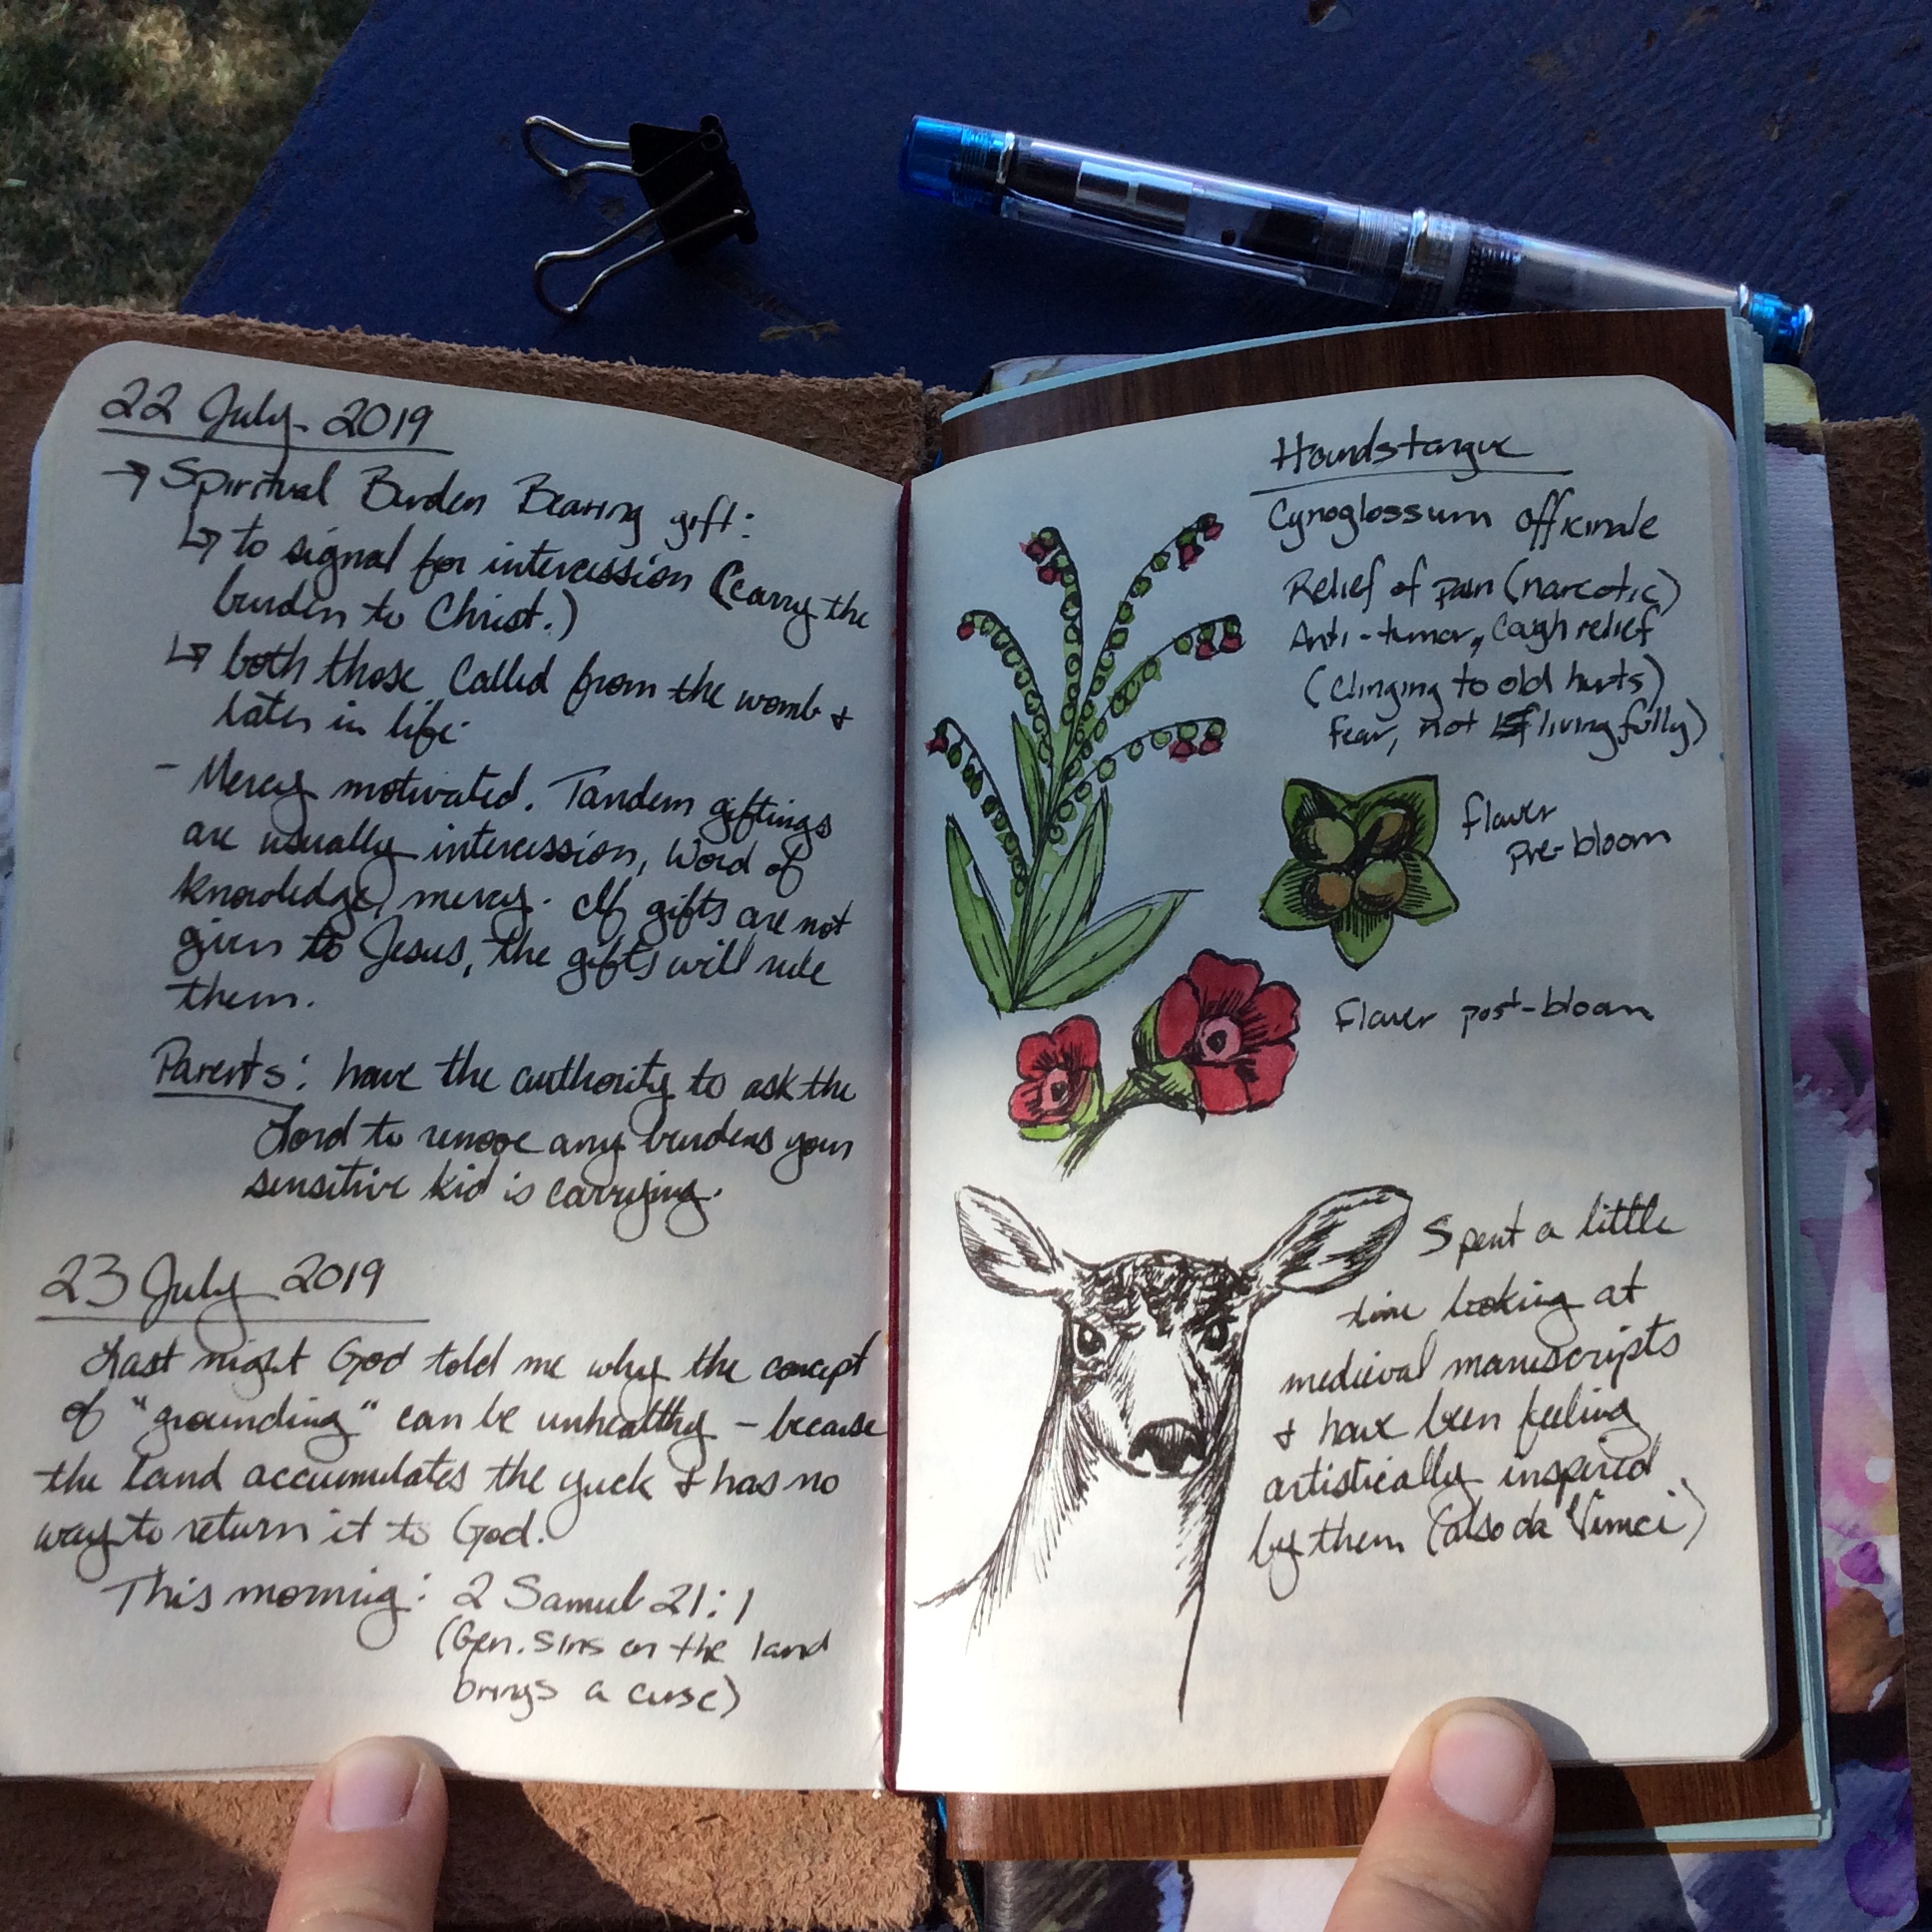 22 July 2019
→ Spiritual Burden Bearing gift:
↳ to signal for intercession (carry the
burden to Christ.)
↳ both those called from the womb &
later in life.
- Mercy motivated. Tandem giftings
are usually intercession, Word of
knowledge, mercy. If gifts are not
given to Jesus, the gifts will rule
them.
Parents: have the authority to ask the
Lord to remove any burdens your
sensitive kid is carrying.
23 July 2019
Last night God told me why the concept
of "grounding" can be unhealthy - because
the land accumulates the yuck & has no
way to return it to God.
This morning: 2 Samuel 21:1
(Gen. sins on the land
brings a curse)
Houndstongue
Cynoglossum officinale
Relief of pain (narcotic)
Anti-tumor, Cough relief
(Clinging to old hurts)
fear, not living fully)
flower
pre-bloom
flower post-bloom
Spent a little
time looking at
medieval manuscripts
& have been feeling
artistically inspired
by them (also da Vinci)